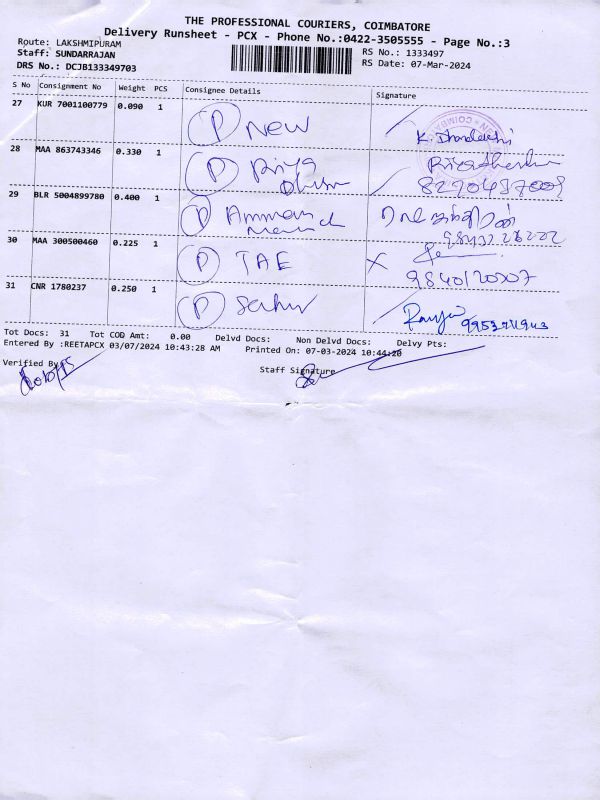 THE PROFESSIONAL COURIERS, COIMBATORE
Delivery Runsheet - PCX - Phone No.:0422-3505555 - Page No.:3
Route: LAKSHMIPURAM
RS No.: 1333497
Staff: SUNDARRAJAN
RS Date: 07-Mar-2024
DRS No.: DCJB133349703
S No Consignment No Weight PCS Consignee Details Signature
27 KUR 7001100779 0.090 1 P New
28 MAA 863743346 0.330 1 P Priya
29 BLR 5004899780 0.400 1 P Amman
30 MAA 300500460 0.225 1 P TAE
31 CNR 1780237 0.250 1 P
Tot Docs: 31 Tot COD Amt: 0.00 Delvd Docs: Non Delvd Docs: Delvy Pts:
Entered By :REETAPCX 03/07/2024 10:43:28 AM Printed On: 07-03-2024 10:44:20
Verified By
Staff Signature